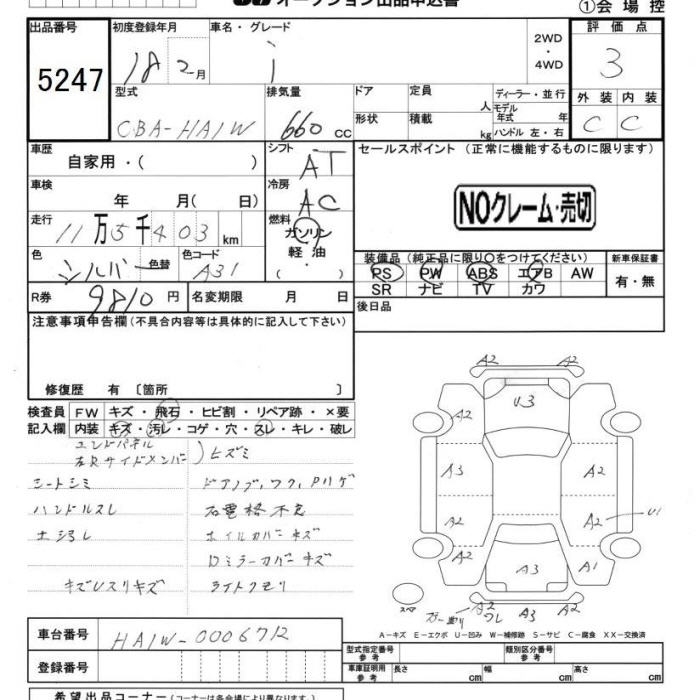 オークション出品申込書
①会場控
出品番号
5247
初度登録年月
18 2月
車名・グレード
i
2WD
・
4WD
評価点
3
型式
CBA-HA1W
排気量
660 CC
ドア
定員 人
形状
積載 kg
ディーラー・並行
モデル年式 年
ハンドル 左・右
外装 内装
C C
車歴
自家用・( )
シフト
AT
セールスポイント (正常に機能するものに限ります)
NOクレーム・売切
車検
年 月( 日)
冷房
AC
走行
11万5千403km
燃料
ガソリン
軽油
・( )
色
シルバー 色替
色コード
A31
装備品 (純正品に限り○をつけてください)
PS PW ABS エアB AW
SR ナビ TV カワ
新車保証書
有・無
R券 9810円
名変期限 月 日
後日品
注意事項申告欄 (不具合内容等は具体的に記入して下さい)
修復歴 有 〔箇所 〕
検査員記入欄
FW キズ・飛石・ヒビ割・リペア跡・×要
内装 キズ・汚レ・コゲ・穴・スレ・キレ・破レ
エンドパネル
左Rサイドメンバー )ヒズミ
シートシミ
ハンドルスレ
土汚レ
キズUスリキズ
石電格不良
ホイルカバーキズ
Dミラーカバーキズ
ライトクモリ
A2 A2
A2 U3 A2
A3 A2
A2 A2 U1
A2 A3 A1
スペア
A2 A3 A2
A-キズ E-エクボ U-凹み W-補修跡 S-サビ C-腐食 XX-交換済
車台番号
HA1W-0006712
登録番号
型式指定番号 参考
類別区分番号 参考
車庫証明用 参考
長さ cm 幅 cm 高さ cm
希望出品コーナー